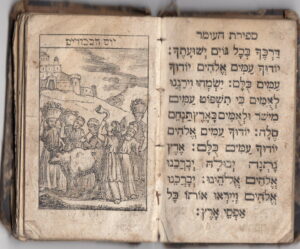 ספירת העומר
דַּרְכֶּךָ בְּכָל גּוֹיִם יְשׁוּעָתֶךָ:
יוֹדוּךָ עַמִּים אֱלֹהִים יוֹדוּךָ
עַמִּים כֻּלָּם: יִשְׂמְחוּ וִירַנְּנוּ
לְאֻמִּים כִּי תִשְׁפּוֹט עַמִּים
מִישֹׁר וּלְאֻמִּים בָּאָרֶץ תַּנְחֵם
סֶלָה: יוֹדוּךָ עַמִּים אֱלֹהִים
יוֹדוּךָ עַמִּים כֻּלָּם: אֶרֶץ
נָתְנָה יְבוּלָהּ יְבָרְכֵנוּ
אֱלֹהִים אֱלֹהֵינוּ: יְבָרְכֵנוּ
אֱלֹהִים וְיִירְאוּ אוֹתוֹ כָּל
אַפְסֵי אָרֶץ:
יום הבכורים